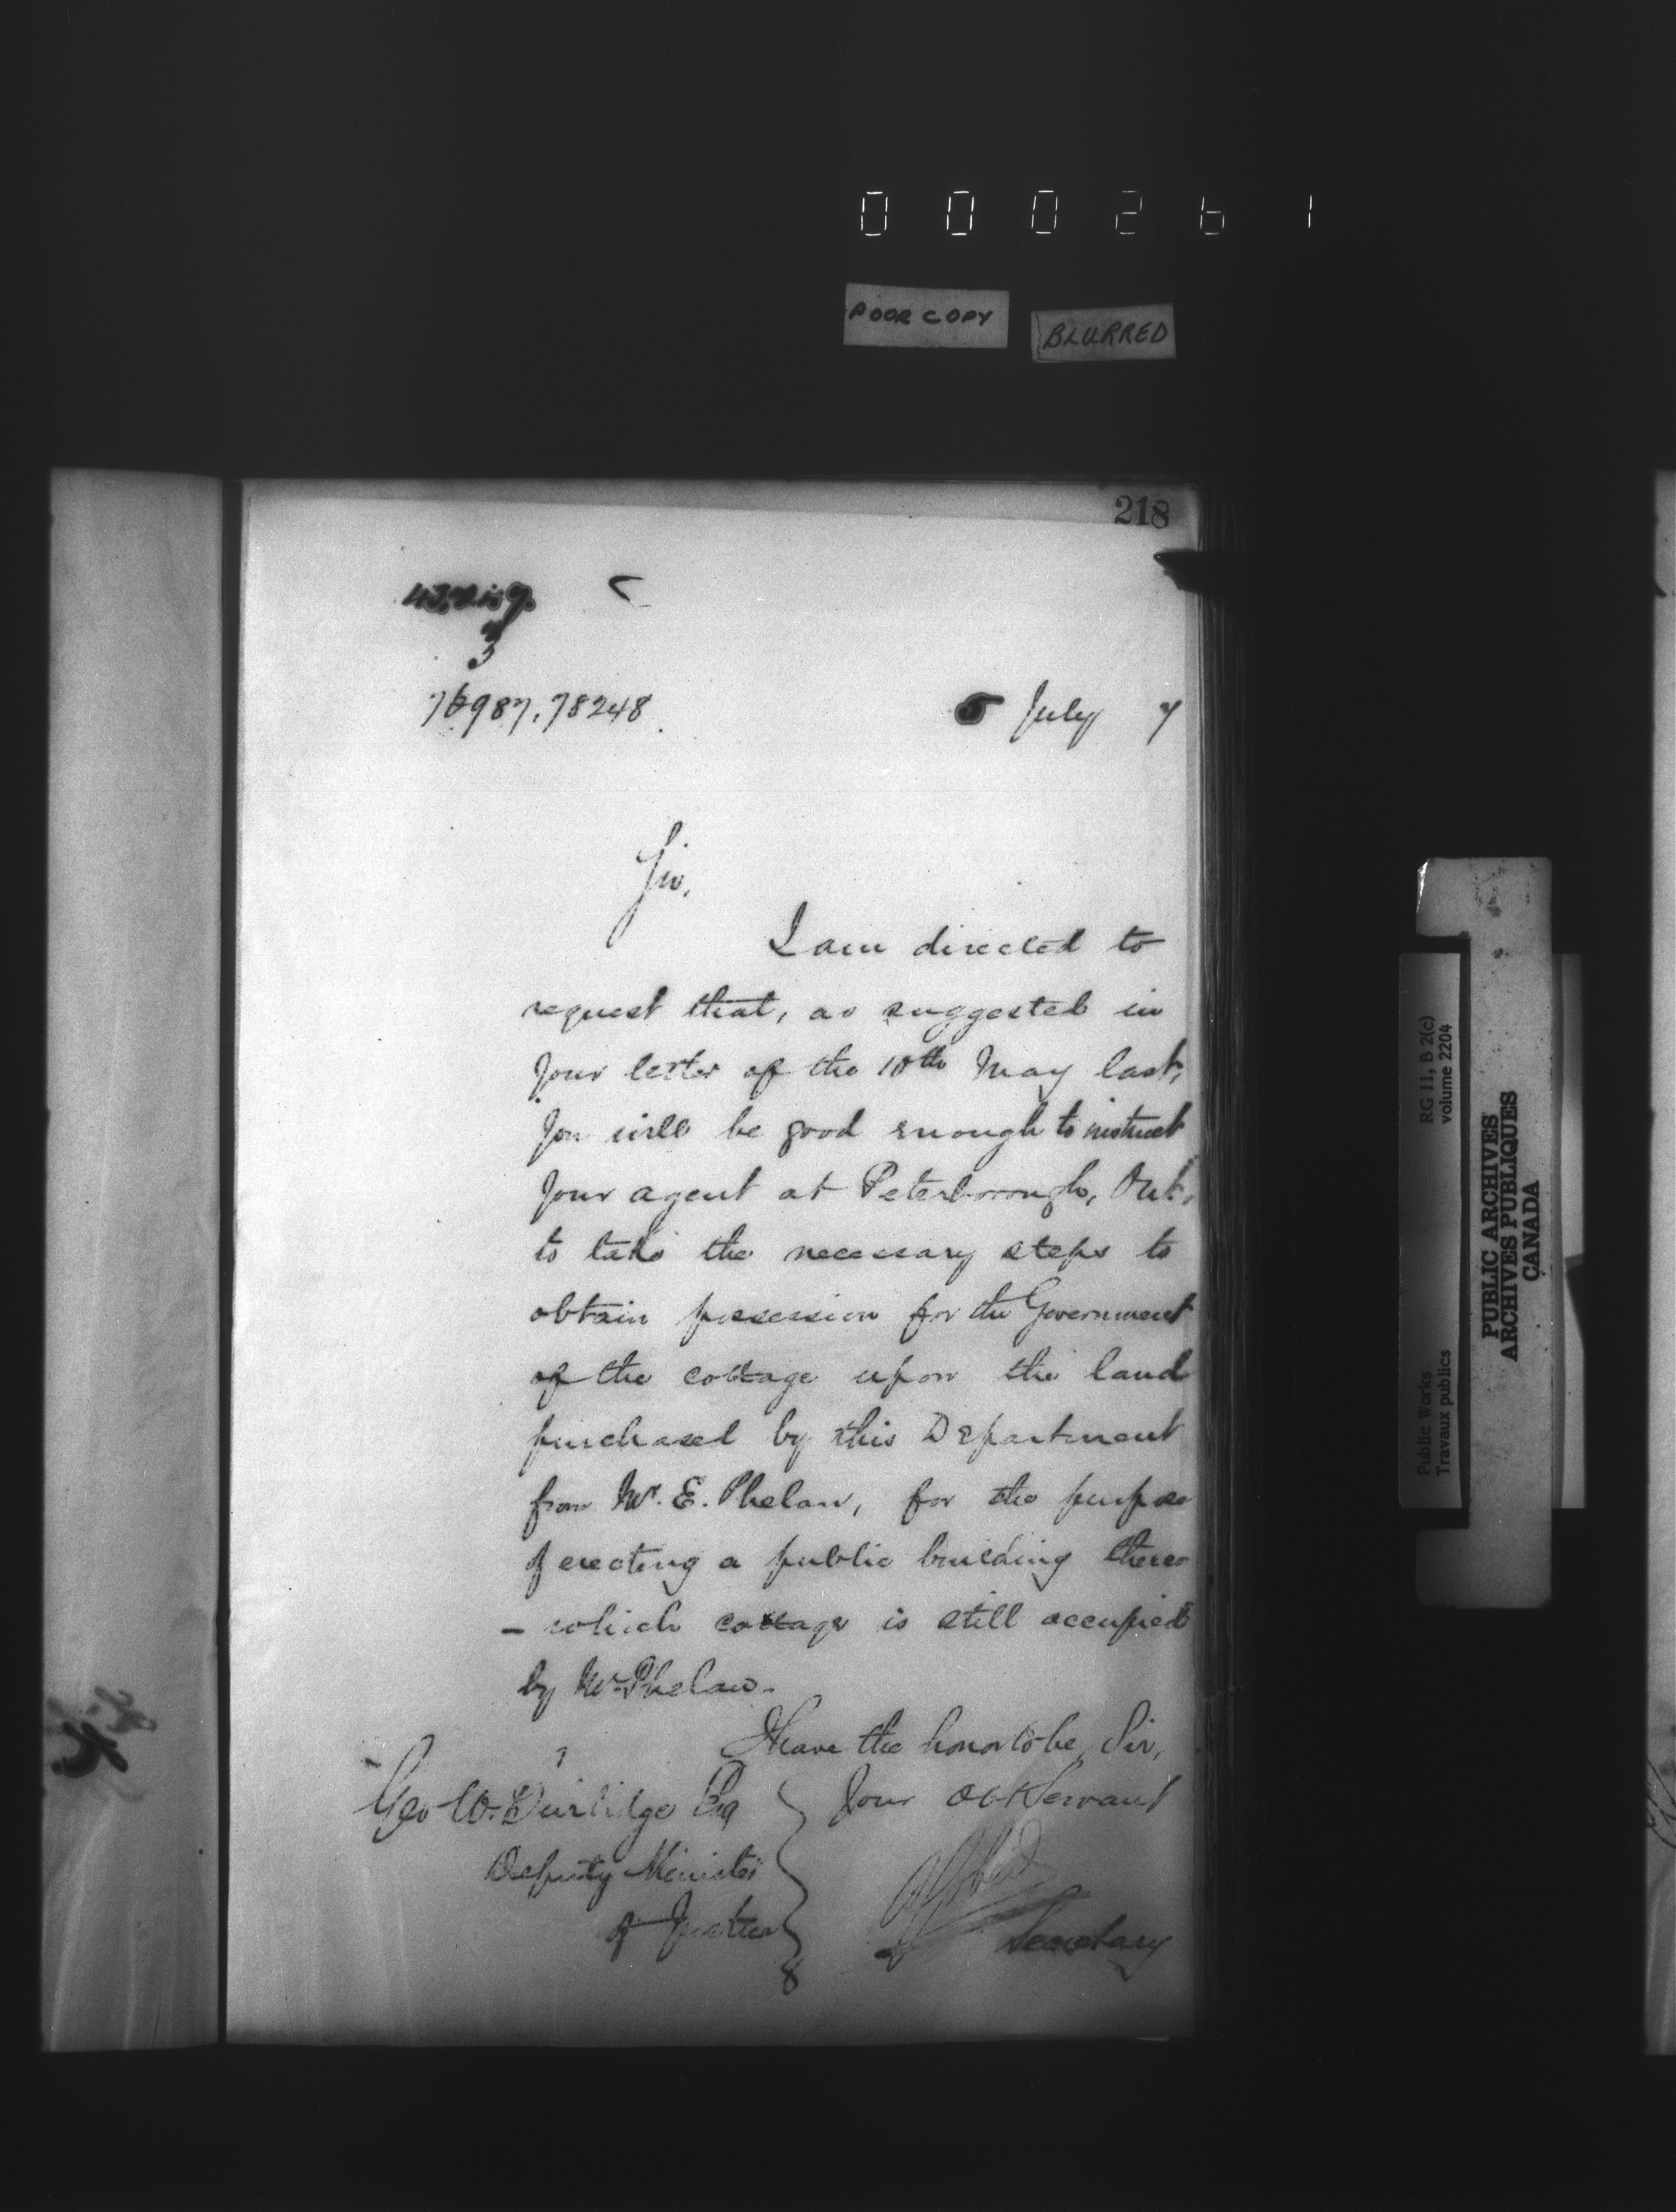 000261
POOR COPY
BLURRED
218
3
76987, 78248
5 July 7
Sir,
I am directed to
request that, as suggested in
your letter of the 10th May last,
you will be good enough to instruct
your agent at Peterborough, Ont.,
to take the necessary steps to
obtain possession for the Government
of the cottage upon the land
purchased by this Department
from Mr. E. Phelan, for the purpose
of erecting a public building thereo
- which cottage is still occupied
by Mr. Phelan.
I have the honor to be, Sir,
Your Obt Servant
Geo W. Burbidge Esq
Deputy Minister
of Justice
Secretary
Public Works
Travaux publics
RG 11, B 2(c)
volume 2204
PUBLIC ARCHIVES
ARCHIVES PUBLIQUES
CANADA